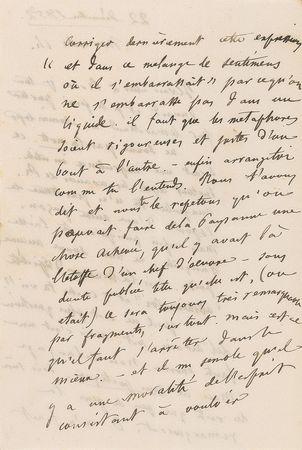 corriger dernièrement cette expression
« et dans ce mélange de sentimens
où il s'embarrassait » parce qu'on
ne s'embarrasse pas dans un
liquide. il faut que les métaphores
soient rigoureuses et justes d'un
bout à l'autre. - enfin arrange-toi
comme tu l'entends. Nous t'avons
dit et nous te le répétons qu'on
pouvait faire de la Paysanne une
chose achevée, qu'il y avait là
l'étoffe d'un chef d'oeuvre - sans
doute publiée telle qu'elle est, (ou
était) ce sera toujours très remarquable
par fragments, surtout. mais est-ce
qu'il faut s'arrêter dans le
mieux. - et il me semble qu'il
y a une moralité de l'esprit
consistant à vouloir